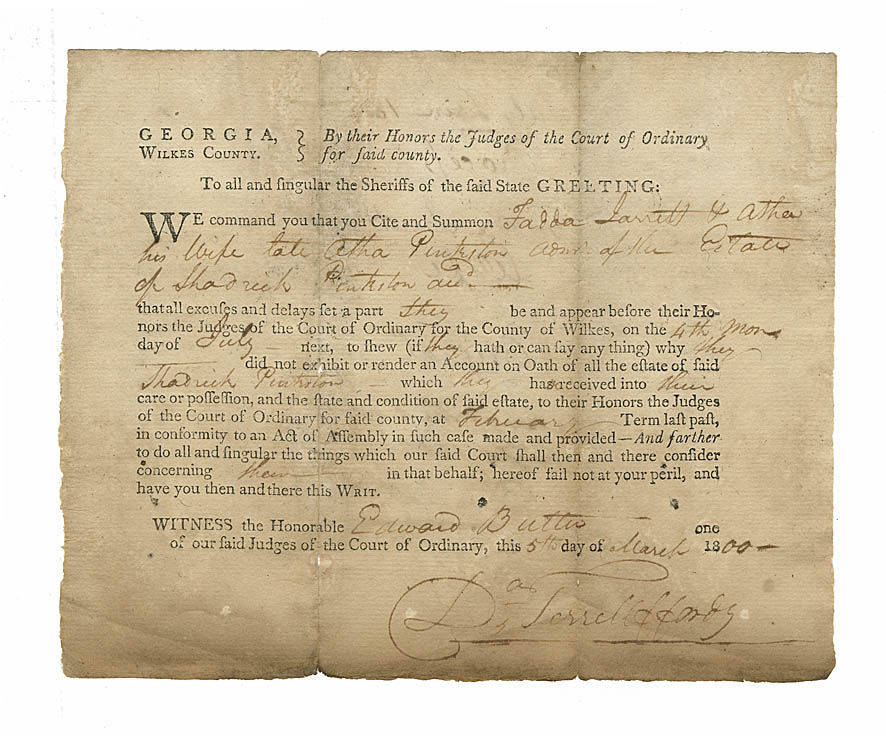 GEORGIA, } By their Honors the Judges of the Court of Ordinary
WILKES COUNTY. } for ſaid county.
To all and ſingular the Sheriffs of the ſaid State GREETING:
WE command you that you Cite and Summon Fadda Jarrett & Atha
his Wife late Atha Pinkston adms. of the Estate
of Shadrick Pinkston
that all excuſes and delays ſet a part they be and appear before their Ho-
nors the Judges of the Court of Ordinary for the County of Wilkes, on the 4th Mon
day of July next, to ſhew (if they hath or can ſay any thing) why they
did not exhibit or render an Account on Oath of all the eſtate of ſaid
Shadrick Pinkston which they has received into their
care or poſſeſſion, and the ſtate and condition of ſaid eſtate, to their Honors the Judges
of the Court of Ordinary for ſaid county, at February Term laſt paſt,
in conformity to an Act of Aſſembly in ſuch caſe made and provided—And farther
to do all and ſingular the things which our ſaid Court ſhall then and there conſider
concerning them in that behalf; hereof fail not at your peril, and
have you then and there this WRIT.
WITNESS the Honorable Edward Butler one
of our ſaid Judges of the Court of Ordinary, this 5th day of March 1800
Da Terrell